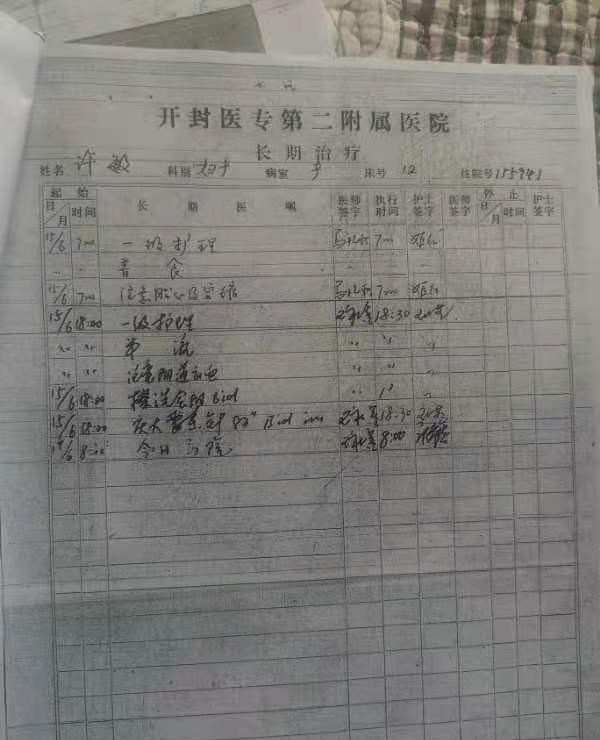 开封医专第二附属医院
长期治疗
姓名 许敏 科别 妇产 病室 产 床号 12 住院号 155941
起始 长期医嘱 医师签字 执行时间 护士签字 医师签字 停止 护士签字
日/月 时间 日/月 时间
15/6 700 一级护理 700
〃 〃 普食 〃 〃 〃
15/6 700 注意胎心及宫缩 700
15/6 18:00 一级护理 18:30
〃 〃 半流 〃 〃 〃
〃 〃 注意阴道出血 〃 〃 〃
15/6 18:00 擦洗会阴 Bid 〃 〃
15/6 18:00 庆大霉素 Bid im 18:30
8:00 今日出院 8:00